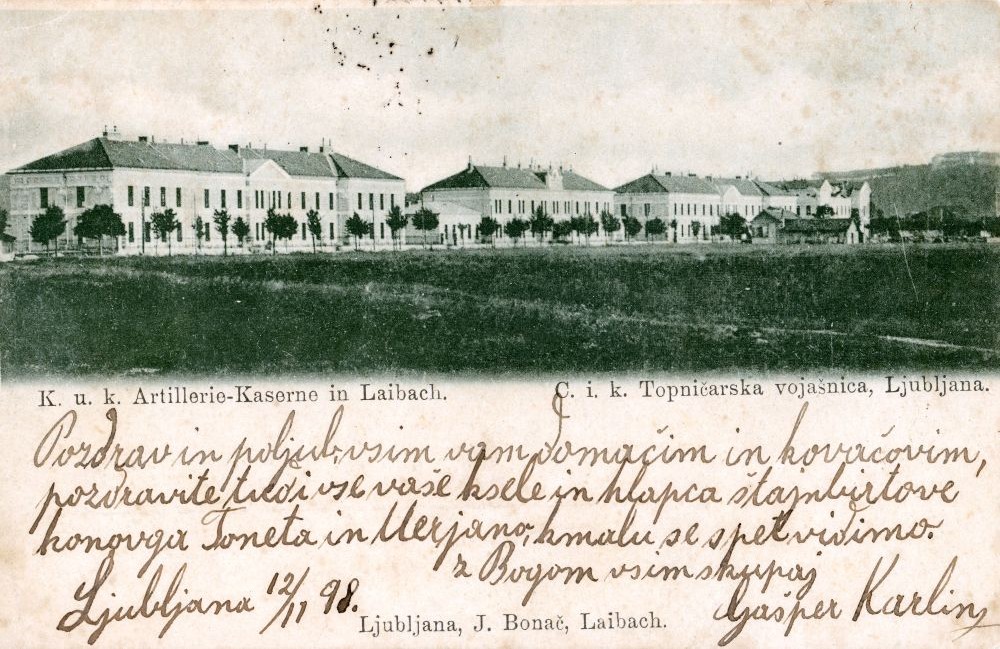 K. u. k. Artillerie-Kaserne in Laibach.
C. i. k. Topničarska vojašnica, Ljubljana.
Pozdrav in poljub vsim vam domačim in kovačovim,
pozdravite tudi vse vaše ksele in hlapca štajnbirtove
konovga Toneta in Merjano, kmalu se spet vidimo.
z Bogom vsim skupaj
Ljubljana 12/11 98.
Gašper Karlin
Ljubljana, J. Bonač, Laibach.